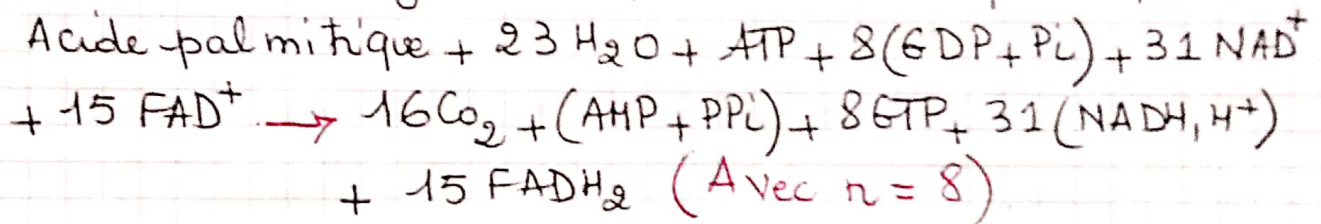 Acide palmitique + 23 H₂O + ATP + 8(GDP + Pi) + 31 NAD⁺
+ 15 FAD⁺ → 16Co₂ + (AMP + PPi) + 8GTP + 31 (NADH, H⁺)
+ 15 FADH₂ (Avec n = 8)